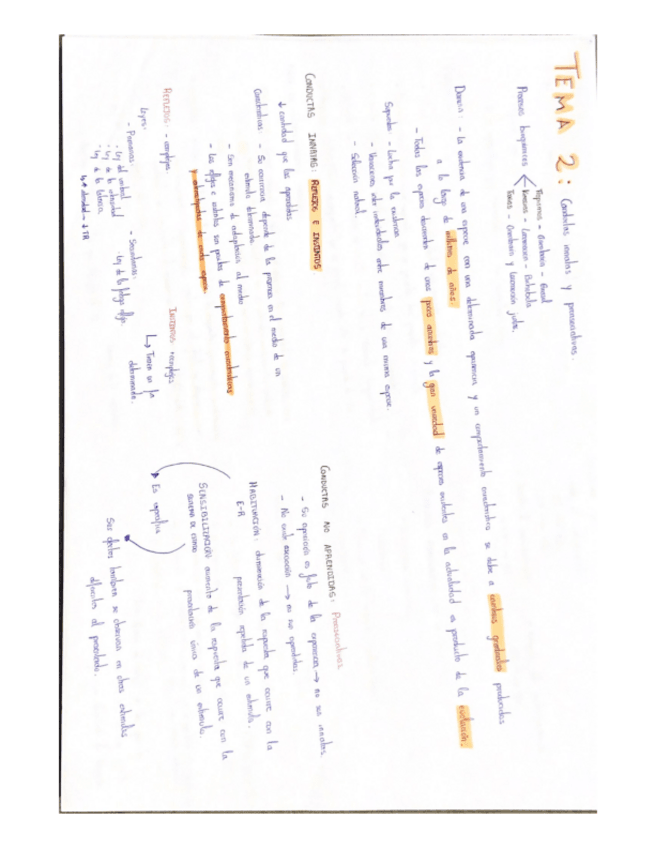 TEMA 2: Conductas innatas y preasociativas.
Procesos bioquímicos
Tropismos - Orientación - Vegetal
Kinesias - Locomoción -
Taxias - Orientación y locomoción juntas.
Darwin: - La existencia de una especie con una determinada apariencia y un comportamiento característico se debe a cambios graduales producidos
a lo largo de millones de años.
- Todas las especies descienden de unas pocas anteriores y la gran variedad de especies existentes en la actualidad es producto de la evolución.
Supuestos: - Lucha por la existencia.
- Variaciones interindividuales entre miembros de una misma especie.
- Selección natural.
CONDUCTAS INNATAS: REFLEJOS E INSTINTOS
↓ cantidad que las aprendidas
Características: - Su ocurrencia depende de la presencia en el medio de un
estímulo determinado.
- Son mecanismos de adaptación al medio
- Los reflejos e instintos son pautas de comportamiento características
y estereotipadas de cada especie.
REFLEJOS: - complejos
Leyes:
- Primarias:
· Ley del umbral
· Ley de la intensidad
· Ley de la latencia.
↳ ↑ intensidad - ↓ TR
- Secundarias:
· Ley de la fatiga refleja.
INSTINTOS: + complejos
↳ Tienen un fin
determinado.
CONDUCTAS NO APRENDIDAS: Preasociativas
- Su aparición es fruto de la experiencia → no son innatas.
- No existe asociación → no son aprendidas.
HABITUACIÓN: disminución de la respuesta que ocurre con la
E-R presentación repetida de un estímulo.
SENSIBILIZACIÓN: aumento de la respuesta que ocurre con la
presentación única de un estímulo.
Es específica
Sus efectos también se observan en otros estímulos
diferentes al presentado.